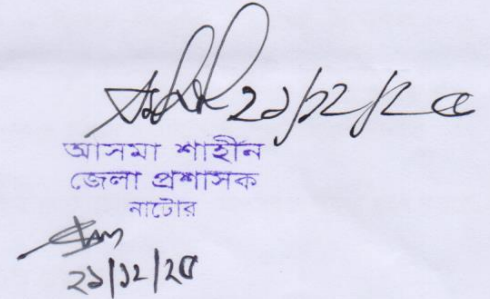 ২১/১২/২৫
আসমা শাহীন
জেলা প্রশাসক
নাটোর
২১/১২/২৫